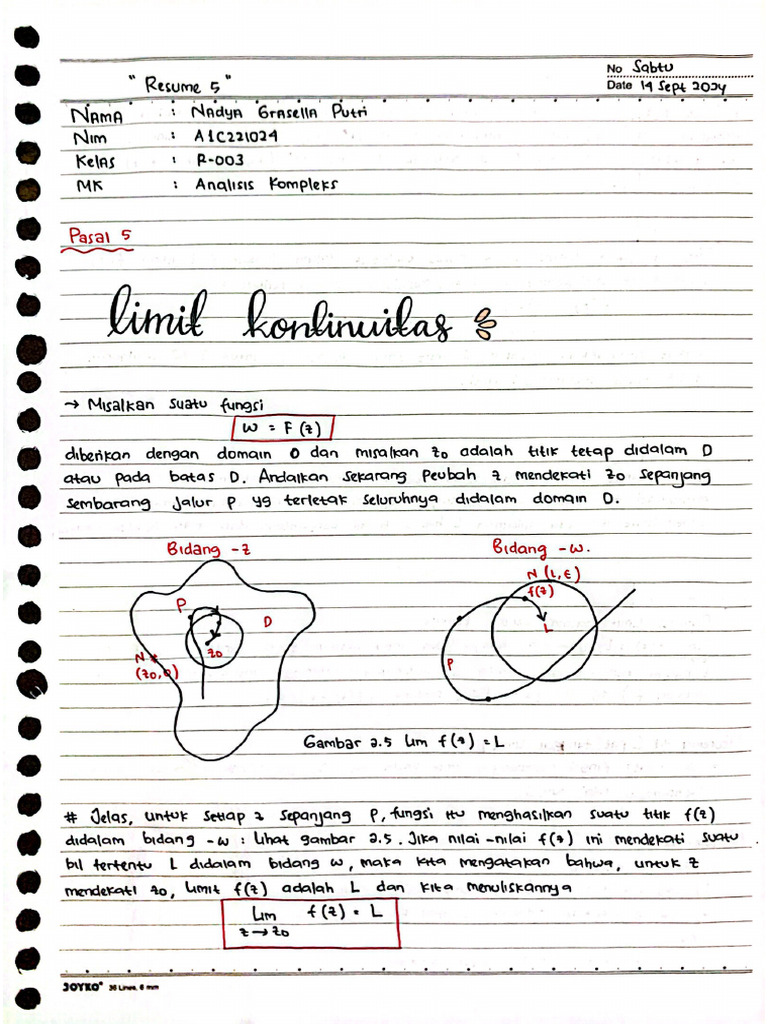 No Sabtu
" Resume 5 "
Date 14 Sept 2024
Nama : Nadya Grasella Putri
Nim : A1C221024
Kelas : R-003
MK : Analisis Kompleks
Pasal 5
limit kontinuitas
→ Misalkan suatu fungsi
w = F (z)
diberikan dengan domain D dan misalkan zo adalah titik tetap didalam D
atau pada batas D. Andaikan sekarang Peubah z mendekati zo sepanjang
sembarang jalur P yg terletak seluruhnya didalam domain D.
Bidang -z
Bidang -w.
N (L,ε)
f(z)
P
D
L
zo
N
(zo,δ)
P
Gambar 2.5 lim f(z) = L
# Jelas, untuk setiap z sepanjang P, fungsi itu menghasilkan suatu titik f(z)
didalam bidang -w : lihat gambar 2.5. Jika nilai -nilai f(z) ini mendekati suatu
bil tertentu L didalam bidang w, maka kita mengatakan bahwa, untuk z
mendekati zo, limit f(z) adalah L dan kita menuliskannya
Lim f(z) = L
z → zo
JOYKO® 36 Lines, 6 mm